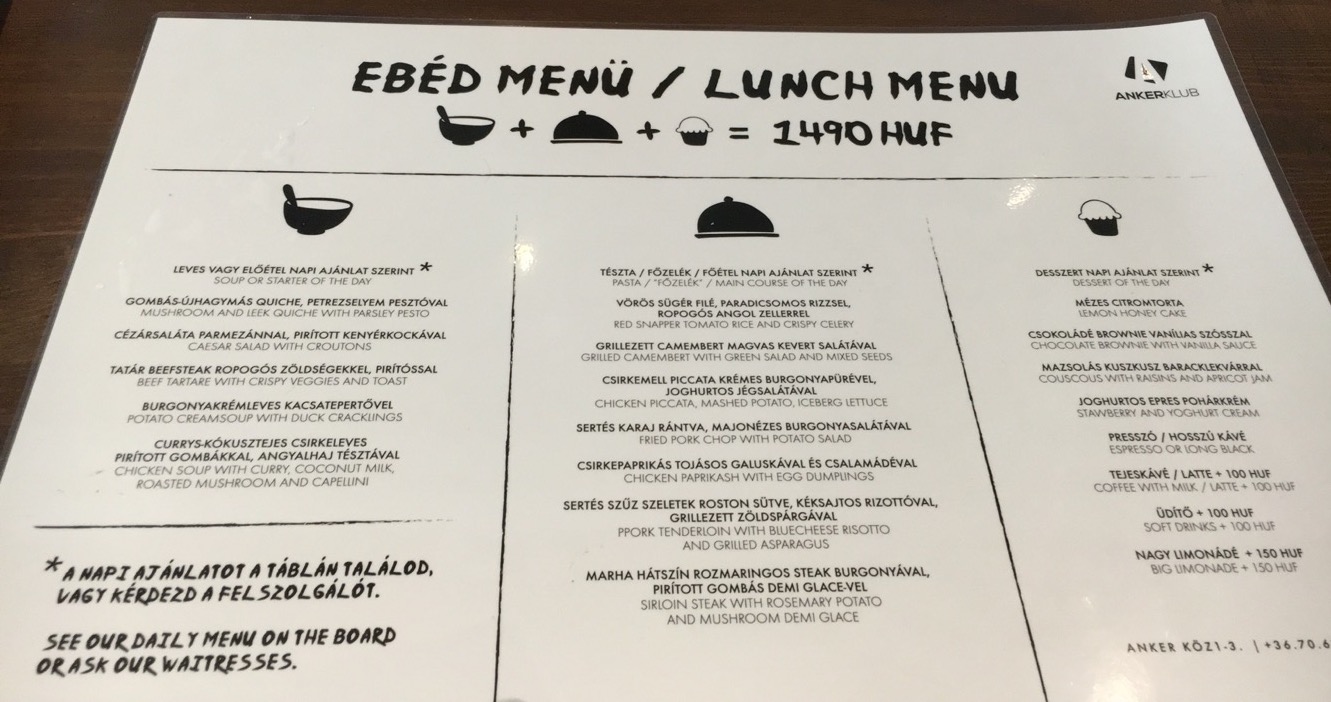 EBÉD MENÜ / LUNCH MENU
ANKERKLUB
+ + = 1490 HUF
LEVES VAGY ELŐÉTEL NAPI AJÁNLAT SZERINT *
SOUP OR STARTER OF THE DAY
GOMBÁS-ÚJHAGYMÁS QUICHE, PETREZSELYEM PESZTÓVAL
MUSHROOM AND LEEK QUICHE WITH PARSLEY PESTO
CÉZÁRSALÁTA PARMEZÁNNAL, PIRÍTOTT KENYÉRKOCKÁVAL
CAESAR SALAD WITH CROUTONS
TATÁR BEEFSTEAK ROPOGÓS ZÖLDSÉGEKKEL, PIRÍTÓSSAL
BEEF TARTARE WITH CRISPY VEGGIES AND TOAST
BURGONYAKRÉMLEVES KACSATEPERTŐVEL
POTATO CREAMSOUP WITH DUCK CRACKLINGS
CURRYS-KÓKUSZTEJES CSIRKELEVES
PIRÍTOTT GOMBÁKKAL, ANGYALHAJ TÉSZTÁVAL
CHICKEN SOUP WITH CURRY, COCONUT MILK,
ROASTED MUSHROOM AND CAPELLINI
*A NAPI AJÁNLATOT A TÁBLÁN TALÁLOD,
VAGY KÉRDEZD A FELSZOLGÁLÓT.
SEE OUR DAILY MENU ON THE BOARD
OR ASK OUR WAITRESSES.
TÉSZTA / FŐZELÉK / FŐÉTEL NAPI AJÁNLAT SZERINT *
PASTA / "FŐZELÉK" / MAIN COURSE OF THE DAY
VÖRÖS SÜGÉR FILÉ, PARADICSOMOS RIZZSEL,
ROPOGÓS ANGOL ZELLERREL
RED SNAPPER TOMATO RICE AND CRISPY CELERY
GRILLEZETT CAMEMBERT MAGVAS KEVERT SALÁTÁVAL
GRILLED CAMEMBERT WITH GREEN SALAD AND MIXED SEEDS
CSIRKEMELL PICCATA KRÉMES BURGONYAPÜRÉVEL,
JOGHURTOS JÉGSALÁTÁVAL
CHICKEN PICCATA, MASHED POTATO, ICEBERG LETTUCE
SERTÉS KARAJ RÁNTVA, MAJONÉZES BURGONYASALÁTÁVAL
FRIED PORK CHOP WITH POTATO SALAD
CSIRKEPAPRIKÁS TOJÁSOS GALUSKÁVAL ÉS CSALAMÁDÉVAL
CHICKEN PAPRIKASH WITH EGG DUMPLINGS
SERTÉS SZŰZ SZELETEK ROSTON SÜTVE, KÉKSAJTOS RIZOTTÓVAL,
GRILLEZETT ZÖLDSPÁRGÁVAL
PPORK TENDERLOIN WITH BLUECHEESE RISOTTO
AND GRILLED ASPARAGUS
MARHA HÁTSZÍN ROZMARINGOS STEAK BURGONYÁVAL,
PIRÍTOTT GOMBÁS DEMI GLACE-VEL
SIRLOIN STEAK WITH ROSEMARY POTATO
AND MUSHROOM DEMI GLACE
DESSZERT NAPI AJÁNLAT SZERINT *
DESSERT OF THE DAY
MÉZES CITROMTORTA
LEMON HONEY CAKE
CSOKOLÁDÉ BROWNIE VANÍLIAS SZÓSSZAL
CHOCOLATE BROWNIE WITH VANILLA SAUCE
MAZSOLÁS KUSZKUSZ BARACKLEKVÁRRAL
COUSCOUS WITH RAISINS AND APRICOT JAM
JOGHURTOS EPRES POHÁRKRÉM
STAWBERRY AND YOGHURT CREAM
PRESSZÓ / HOSSZÚ KÁVÉ
ESPRESSO OR LONG BLACK
TEJESKÁVÉ / LATTE + 100 HUF
COFFEE WITH MILK / LATTE + 100 HUF
ÜDÍTŐ + 100 HUF
SOFT DRINKS + 100 HUF
NAGY LIMONÁDÉ + 150 HUF
BIG LIMONADE + 150 HUF
ANKER KÖZ1-3. | +36.70.6